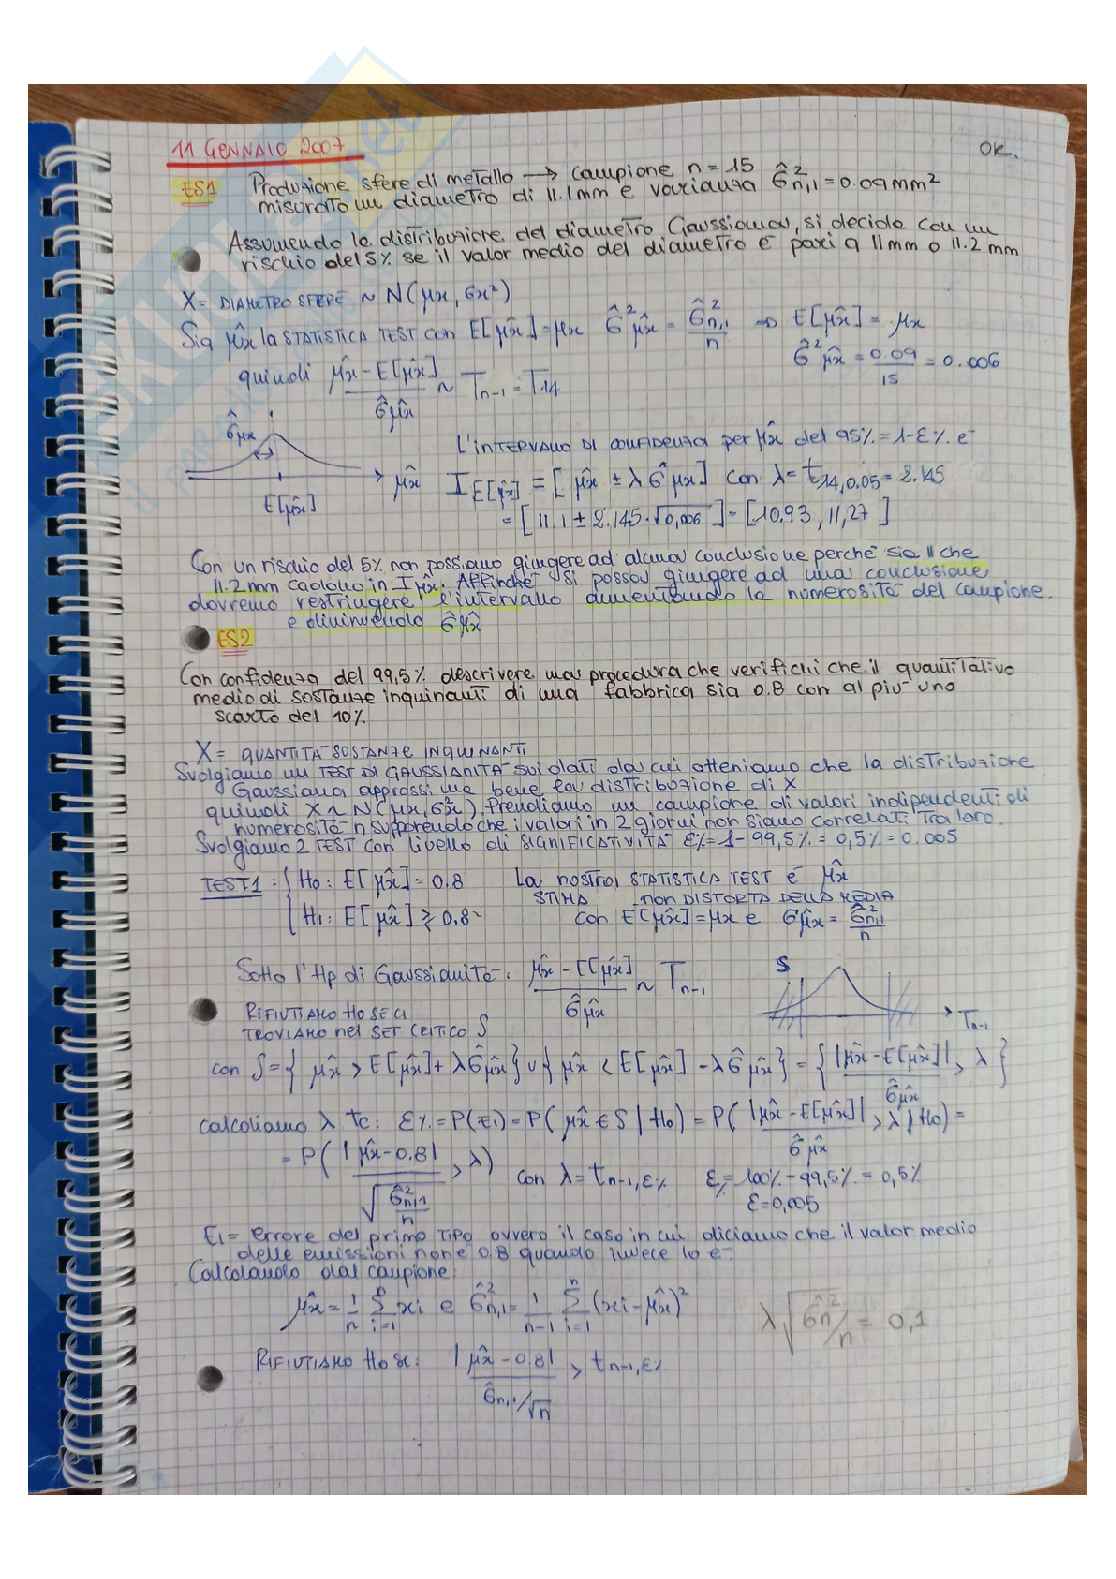 11 GENNAIO 2007
OK.
ES1 Produzione sfere di metallo → campione n = 15
misurato un diametro di 11.1mm e varianza σ̂²n,1 = 0.09 mm²
Assumendo la distribuzione del diametro Gaussiana, si decida con un
rischio del 5% se il valor medio del diametro è pari a 11mm o 11.2 mm
X = DIAMETRO SFERE ~ N(μx, σx²)
Sia μ̂x la STATISTICA TEST con E[μ̂x] = μx σ̂²μ̂x = σ̂²n,1/n ⇒ E[μ̂x] = μx
σ̂²μ̂x = 0.09/15 = 0.006
quindi (μ̂x - E[μ̂x])/σ̂μ̂x ~ Tn-1 = T14
σ̂μx
μ̂x
E[μ̂x]
L'INTERVALLO DI CONFIDENZA per μ̂x del 95% = 1-ε% è
I E[μ̂x] = [μ̂x ± λ σ̂μx] con λ = t14,0.05 = 2.145
= [11.1 ± 2.145·√0,006] = [10.93, 11,27]
Con un rischio del 5% non possiamo giungere ad alcuna conclusione perchè sia 11 che
11.2mm cadono in I μ̂x. Affinchè si possa giungere ad una conclusione
dovremo restringere l'intervallo aumentando la numerosità del campione
e diminuendo σ̂μ̂x
ES2
Con confidenza del 99,5% descrivere una procedura che verifichi che il quantitativo
medio di sostanze inquinanti di una fabbrica sia 0.8 con al più uno
scarto del 10%.
X = QUANTITÀ SOSTANZE INQUINANTI
Svolgiamo un TEST DI GAUSSIANITÀ sui dati da cui otteniamo che la distribuzione
Gaussiana approssima bene la distribuzione di X
quindi X ~ N(μx, σx²). Prendiamo un campione di valori indipendenti di
numerosità n supponendo che i valori in 2 giorni non siano correlati tra loro.
Svolgiamo 2 TEST con livello di SIGNIFICATIVITÀ ε% = 1 - 99,5% = 0,5% = 0.005
TEST1: { H0: E[μ̂x] = 0.8 La nostra STATISTICA TEST è μ̂x
STIMA non DISTORTA DELLA MEDIA
{ H1: E[μ̂x] ≷ 0.8 con E[μ̂x] = μx e σμ̂x = σ̂²n,1/n
Sotto l'Hp di Gaussianità: (μ̂x - E[μ̂x])/σ̂μ̂x ~ Tn-1
S
Tn-1
RIFIUTIAMO H0 SE CI
TROVIAMO nel SET CRITICO S
con S = {μ̂x > E[μ̂x] + λσ̂μ̂x} ∪ {μ̂x < E[μ̂x] - λσ̂μ̂x} = {|μ̂x - E[μ̂x]|/σ̂μ̂x > λ}
calcoliamo λ tc: ε% = P(E1) = P(μ̂x ∈ S | H0) = P(|μ̂x - E[μ̂x]|/σ̂μ̂x > λ | H0) =
= P(|μ̂x - 0.8|/√(σ̂²n,1/n) > λ) con λ = tn-1,ε% ε% = 100% - 99,5% = 0,5%
ε = 0,005
E1 = errore del primo TIPO ovvero il caso in cui diciamo che il valor medio
delle emissioni non è 0.8 quando invece lo è
Calcolando dal campione:
μ̂x = 1/n Σ(i=1, n) xi e σ̂²n,1 = 1/(n-1) Σ(i=1, n) (xi - μ̂x)²
λ√(σ̂n²/n) = 0,1
RIFIUTIAMO H0 se: |μ̂x - 0.8|/(σ̂n,1/√n) > tn-1,ε%